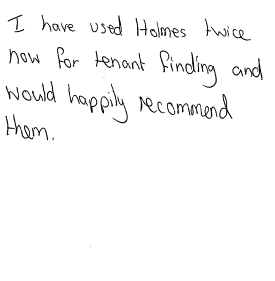 I have used Holmes twice
now for tenant finding and
would happily recommend
them.